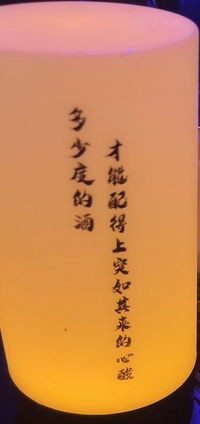 多少度的酒
才能配得上突如其来的心酸